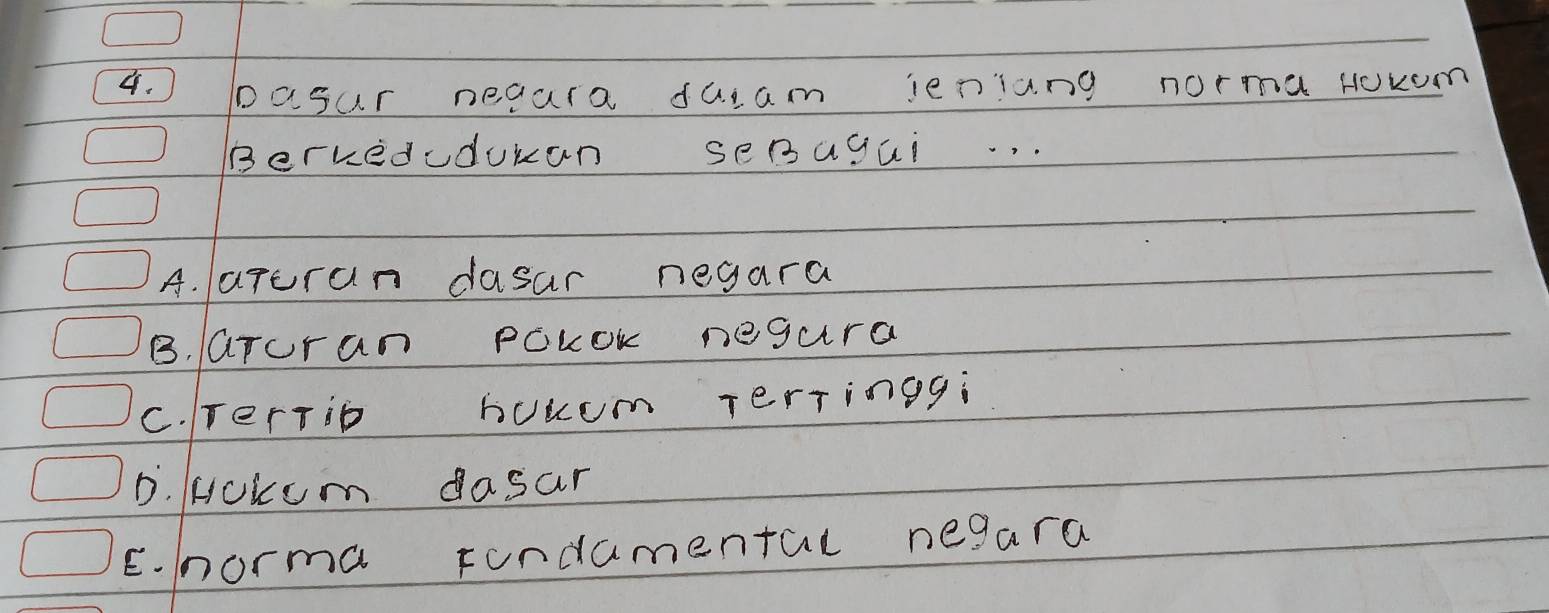 4. Dasar negara dalam jenjang norma Hukum
Berkedudukan seBagai ...
A. aturan dasar negara
B. aturan Pokok negara
C. Tertib hukum Tertinggi
D. Hukum dasar
E. norma Fundamental negara